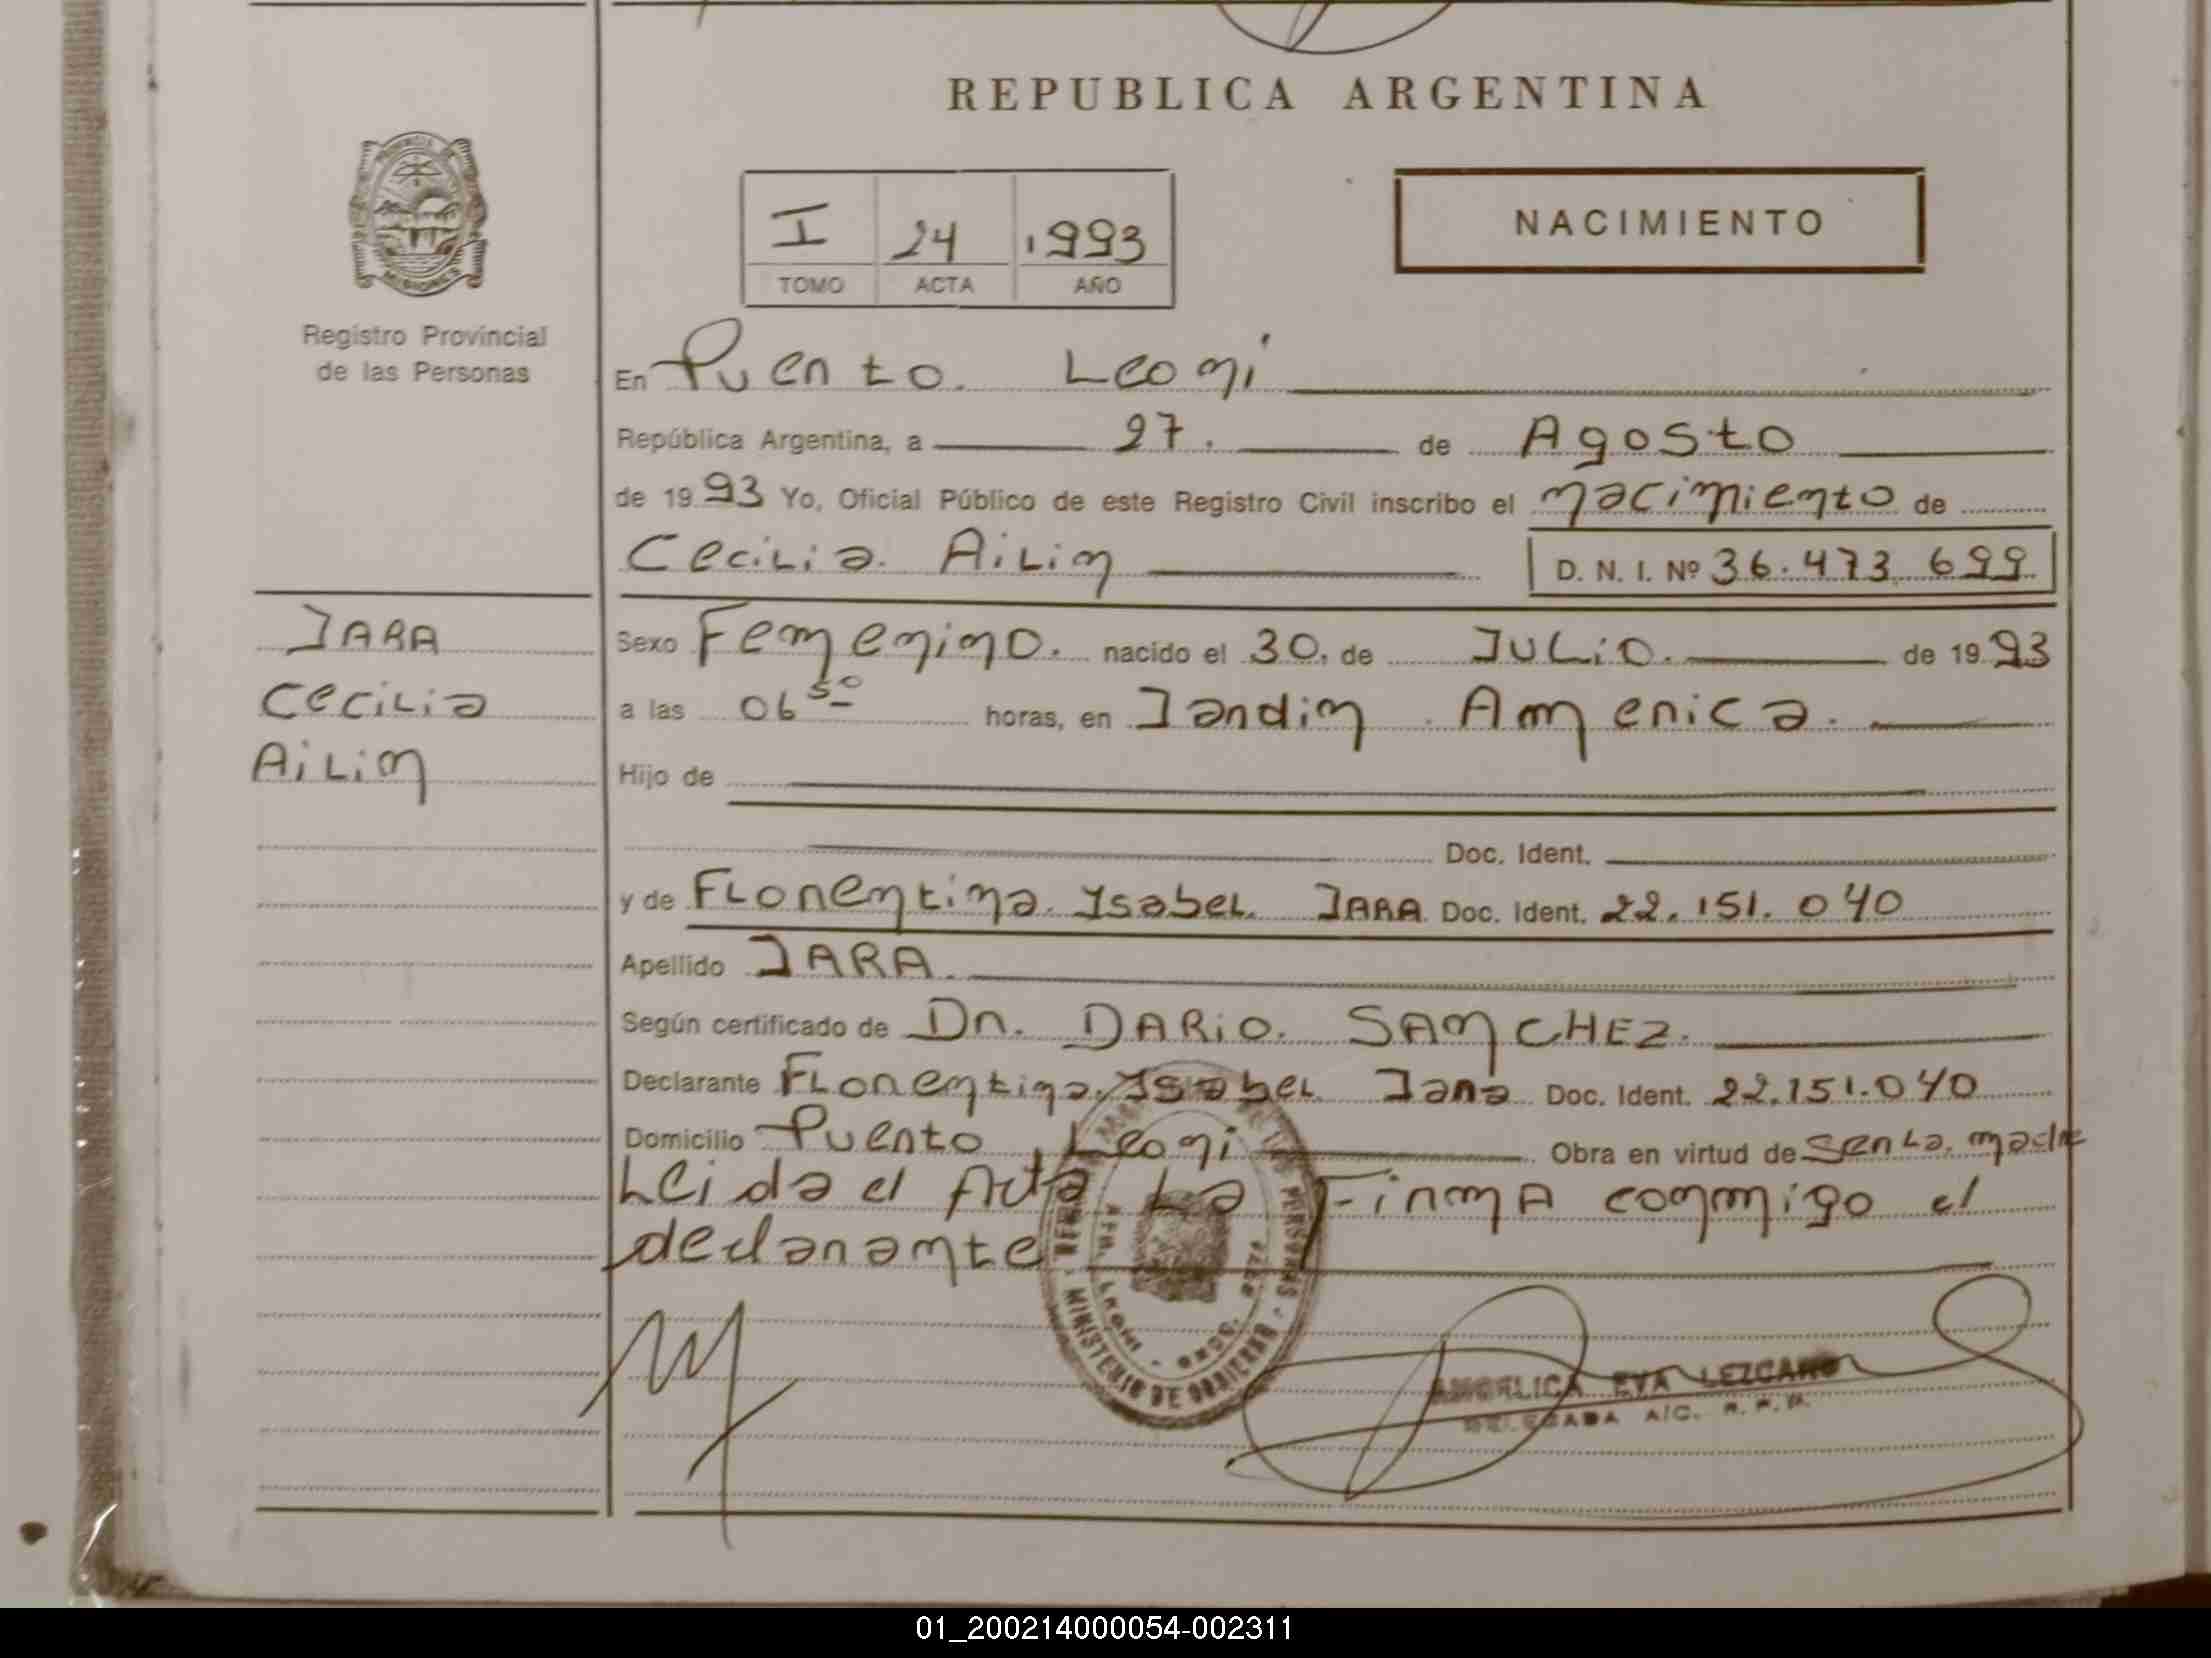 REPUBLICA ARGENTINA
PROVINCIA DE
MISIONES
Registro Provincial
de las Personas
I 24 1993
TOMO ACTA AÑO
NACIMIENTO
En Puerto Leoni
República Argentina, a 27. de Agosto
de 1993 Yo, Oficial Público de este Registro Civil inscribo el nacimiento de
Cecilia Ailin D. N. I. Nº 36.473.699
JARA
Cecilia
Ailin
Sexo Femenino. nacido el 30. de Julio. de 1993
a las 06 50 horas, en Jardin America.
Hijo de
Doc. Ident.
y de Florentina Ysabel JARA Doc. Ident. 22.151.040
Apellido JARA
Según certificado de Dr. DARIO SANCHEZ.
Declarante Florentina Ysabel Jara Doc. Ident. 22.151.040
Domicilio Puerto Leoni Obra en virtud de ser La madre
Leida el Acta La Firma conmigo el
declarante
PERSONAS - MINISTERIO DE GOBIERNO
LEONI
ANGELICA EVA LEZCANO
DELEGADA A/C. R. P. P.
01_200214000054-002311